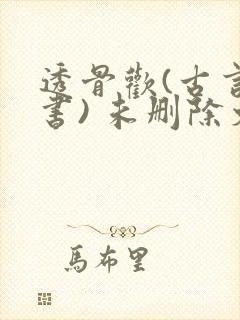 透骨歡(古言
書)未刪除
馬布里